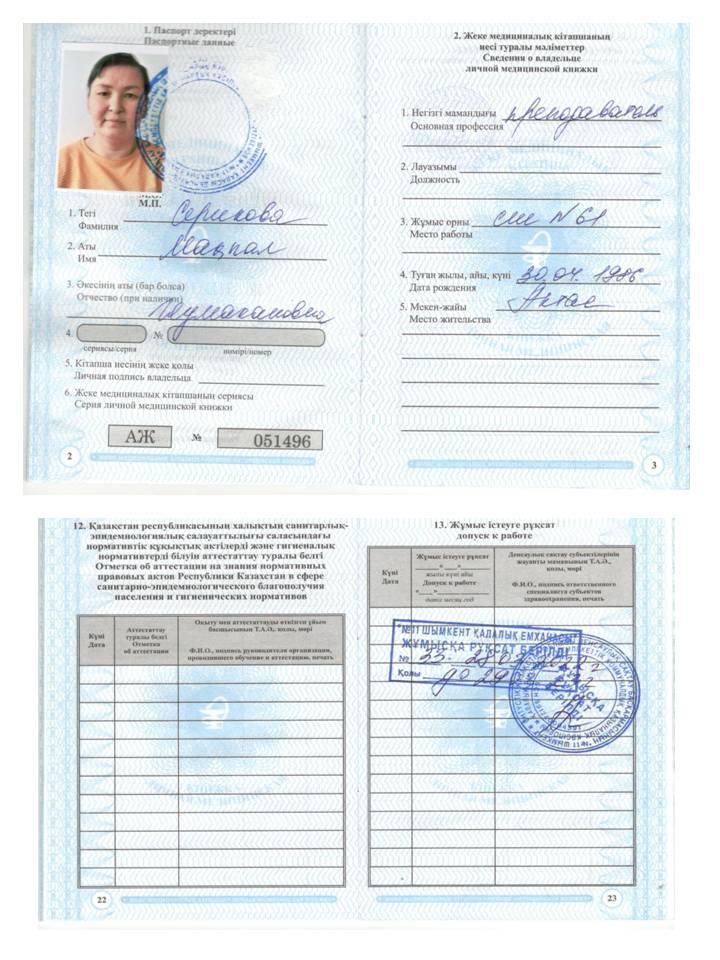 1. Паспорт деректері
Паспортные данные
М.П.
1. Тегі Серикова
Фамилия
2. Аты Мақпал
Имя
3. Әкесінің аты (бар болса)
Отчество (при наличии)
4. №
сериясы/серия нөмірі/номер
5. Кітапша иесінің жеке қолы
Личная подпись владельца
6. Жеке медициналық кітапшаның сериясы
Серия личной медицинской книжки
АЖ № 051496
2
2. Жеке медициналық кітапшаның
иесі туралы мәліметтер
Сведения о владельце
личной медицинской книжки
1. Негізгі мамандығы преподаватель
Основная профессия
2. Лауазымы
Должность
3. Жұмыс орны сш N 61
Место работы
4. Туған жылы, айы, күні 30.04. 1986
Дата рождения
5. Мекен-жайы Актас
Место жительства
3
12. Қазақстан республикасының халықтың санитарлық-
эпидемиологиялық салауаттылығы саласындағы
нормативтік құқықтық актілерді және гигиеналық
нормативтерді білуін аттестаттау туралы белгі
Отметка об аттестации на знания нормативных
правовых актов Республики Казахстан в сфере
санитарно-эпидемиологического благополучия
населения и гигиенических нормативов
Күні
Дата
Аттестаттау
туралы белгі
Отметка
об аттестации
Оқыту мен аттестаттауды өткізген ұйым
басшысының Т.А.Ә., қолы, мөрі
Ф.И.О., подпись руководителя организации,
проводившего обучение и аттестацию, печать
22
13. Жұмыс істеуге рұқсат
допуск к работе
Күні
Дата
Жұмыс істеуге рұқсат
"___"___
жылы күні айы
Допуск к работе
"___"___
дата месяц год
Денсаулық сақтау субъектілерінің
жауапты маманының Т.А.Ә.,
қолы, мөрі
Ф.И.О., подпись ответственного
специалиста субъектов
здравоохранения, печать
"№11 ШЫМКЕНТ ҚАЛАЛЫҚ ЕМХАНАСЫ"
ЖҰМЫСҚА РҰҚСАТ БЕРІЛДІ
№ 33
Қолы до 29
ЖҰМЫСҚА
РҰҚСАТ
БЕРІЛДІ
23